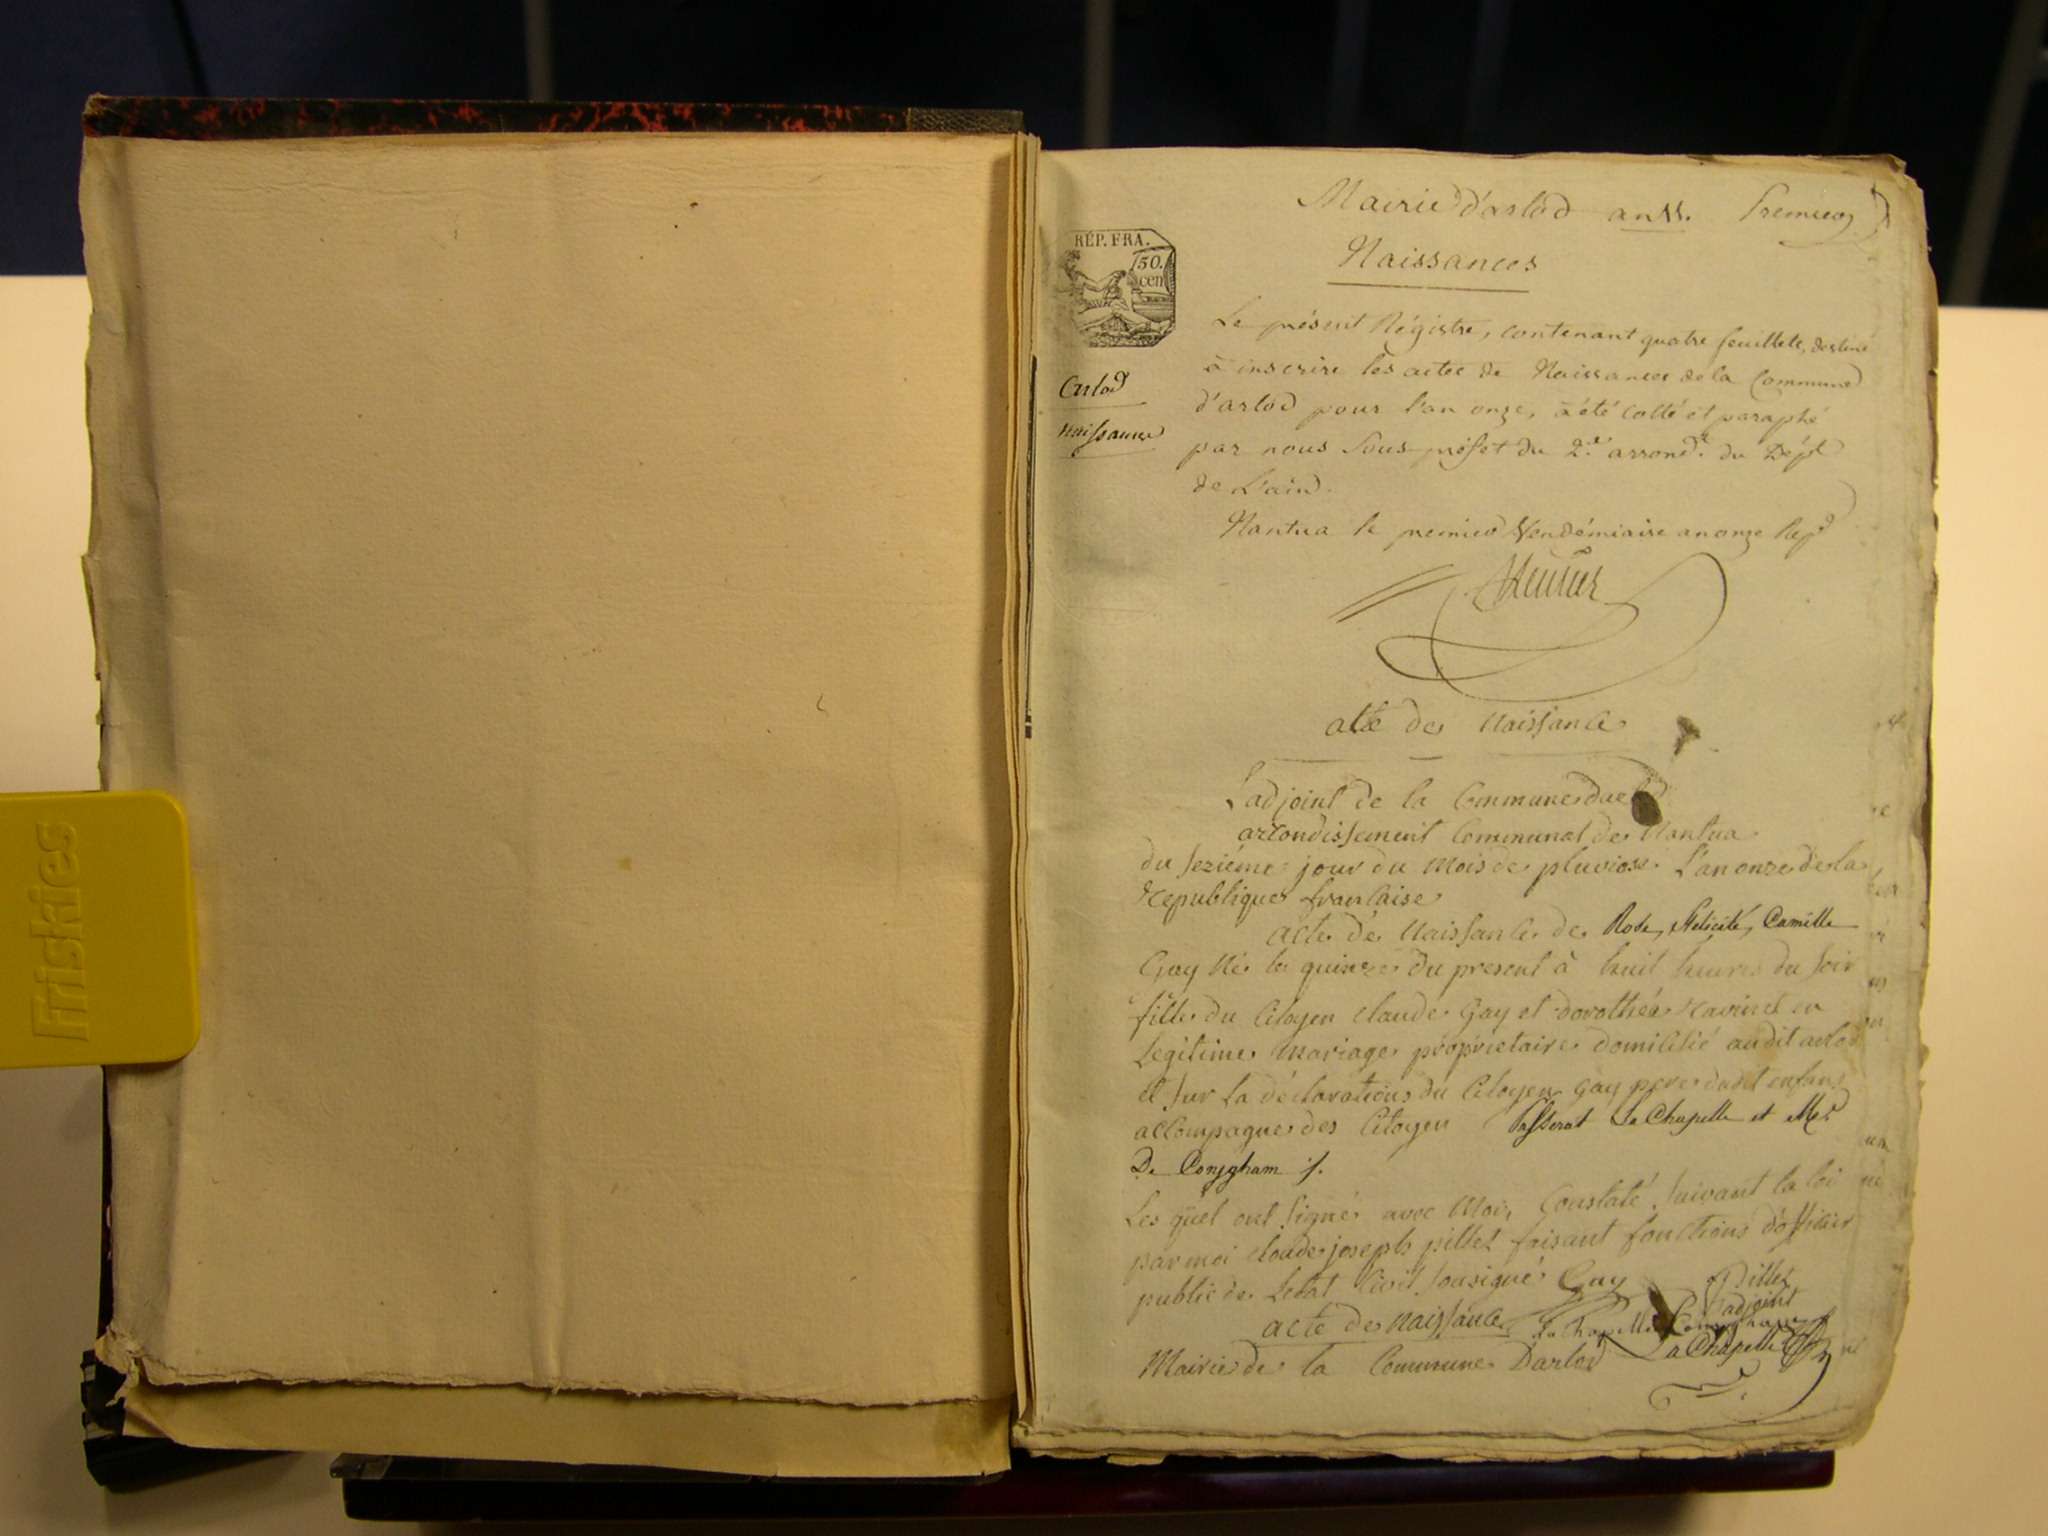 Friskies
Mairie d'arlod an 11. Premier
RÉP. FRA.
50.
cen
Naissances
Le présent Régistre, contenant quatre feuillets, destiné
à inscrire les actes de Naissances de la Commune
d'arlod pour l'an onze, a été cotté et paraphé
par nous Sous-préfet du 2.e arrond.t du Dépt
de L'ain.
Nantua le premier Vendémiaire an onze Rep.
Arlod
naissance
acte de Naissance
L'adjoint de la Commune
arrondissement Communal de Nantua
du sezième jour du mois de pluviose L'an onze de la
republique francaise
acte de Naissance de Rose, Félicité, Camille
Gay Né le quinze du present à huit heures du soir
fille du Citoyen Claude Gay et dorothée Ravinet en
Legitime Mariage propriétaire domicilié audit arlod
et sur la déclarations du Citoyen Gay pere dudit enfant
accompagne des Citoyen Passerat La Chapelle et
De Conygham
Les quel ont signé avec Moi, Constaté suivant la loi
par moi Claude joseph pillet faisant fonctions d'officier
public de Letat Civil sousigné Gay Pillet
adjoint
acte de Naissance La Chapelle Connyngham
Mairie de la Commune Darlod La Chapelle